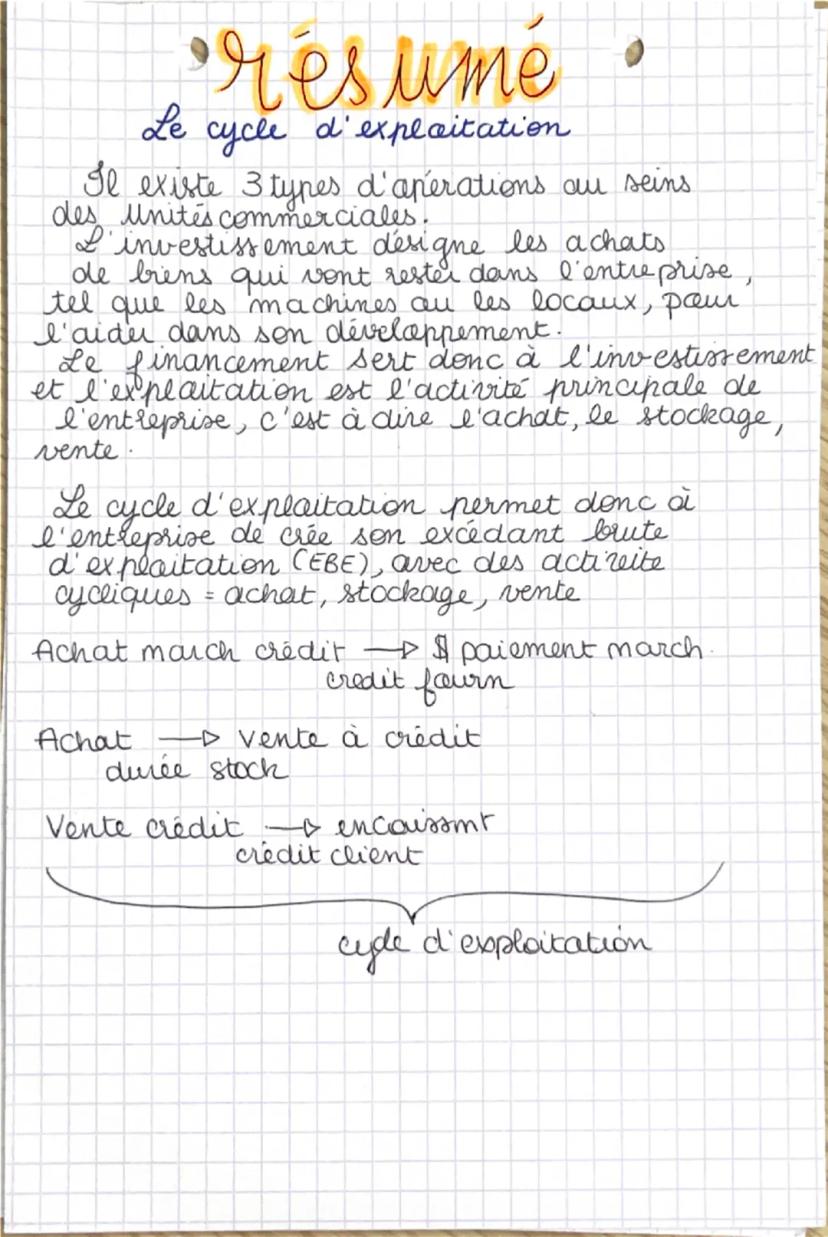 résumé
Le cycle d'exploitation
Il existe 3 types d'opérations au seins
des unités commerciales.
L'investissement désigne les achats
de biens qui vont rester dans l'entreprise,
tel que les machines ou les locaux, pour
l'aider dans son développement.
Le financement sert donc à l'investissement
et l'exploitation est l'activité principale de
l'entreprise, c'est à dire l'achat, le stockage,
vente.
Le cycle d'exploitation permet donc à
l'entreprise de crée son excédant brute
d'exploitation (EBE), avec des activeite
cycliques = achat, stockage, vente
Achat march crédit → $ paiement march.
credit fourn
Achat → vente à crédit
durée stock
Vente crédit → encaissmt
crédit client
cycle d'exploitation